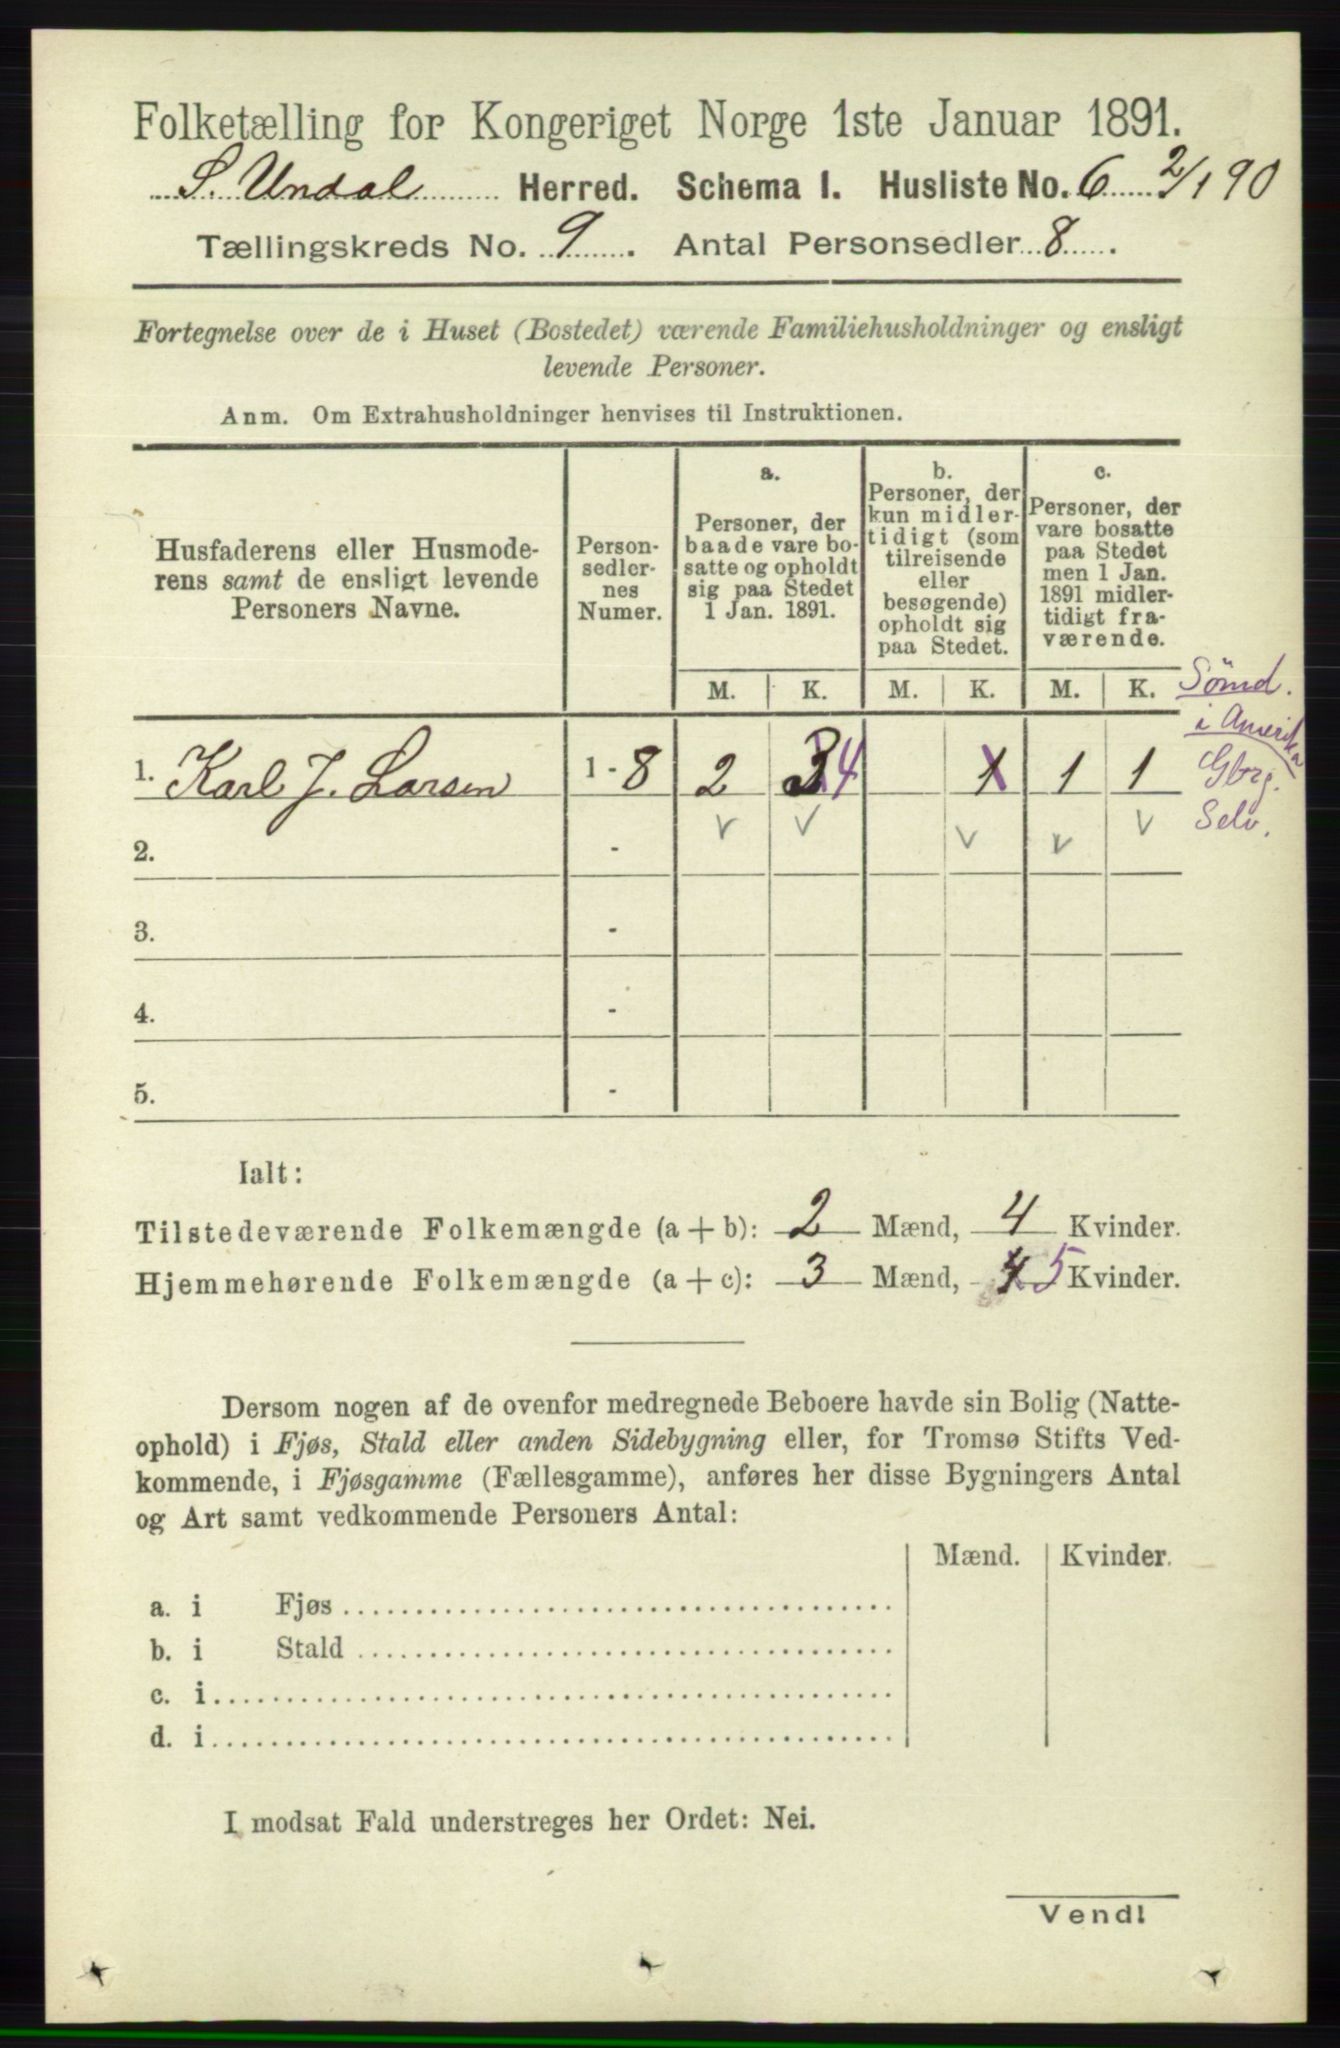 Folketælling for Kongeriget Norge 1ste Januar 1891.
S. Undal Herred. Schema 1. Husliste No. 6 2/1 90
Tællingskreds No. 9. Antal Personsedler 8.
Fortegnelse over de i Huset (Bostedet) værende Familiehusholdninger og ensligt
levende Personer.
Anm. Om Extrahusholdninger henvises til Instruktionen.
Husfaderens eller Husmode-
rens samt de ensligt levende
Personers Navne.
Person-
sedler-
nes
Numer.
a.
Personer, der
baade vare bo-
satte og opholdt
sig paa Stedet
1 Jan. 1891.
b.
Personer, der
kun midler-
tidigt (som
tilreisende
eller
besøgende)
opholdt sig
paa Stedet.
c.
Personer, der
vare bosatte
paa Stedet
men 1 Jan.
1891 midler-
tidigt fra-
værende.
M. K. M. K. M. K.
Sömd.
i Amerika
Gbrg.
Selv.
1. Karl J. Larsen 1 - 8 2 3 4 1 1 1
2. - v v v v v
3. -
4. -
5. -
Ialt:
Tilstedeværende Folkemængde (a + b): 2 Mænd, 4 Kvinder.
Hjemmehørende Folkemængde (a + c): 3 Mænd, 4 5 Kvinder.
Dersom nogen af de ovenfor medregnede Beboere havde sin Bolig (Natte-
ophold) i Fjøs, Stald eller anden Sidebygning eller, for Tromsø Stifts Ved-
kommende, i Fjøsgamme (Fællesgamme), anføres her disse Bygningers Antal
og Art samt vedkommende Personers Antal:
Mænd. Kvinder.
a. i Fjøs
b. i Stald
c. i
d. i
I modsat Fald understreges her Ordet: Nei.
Vend!